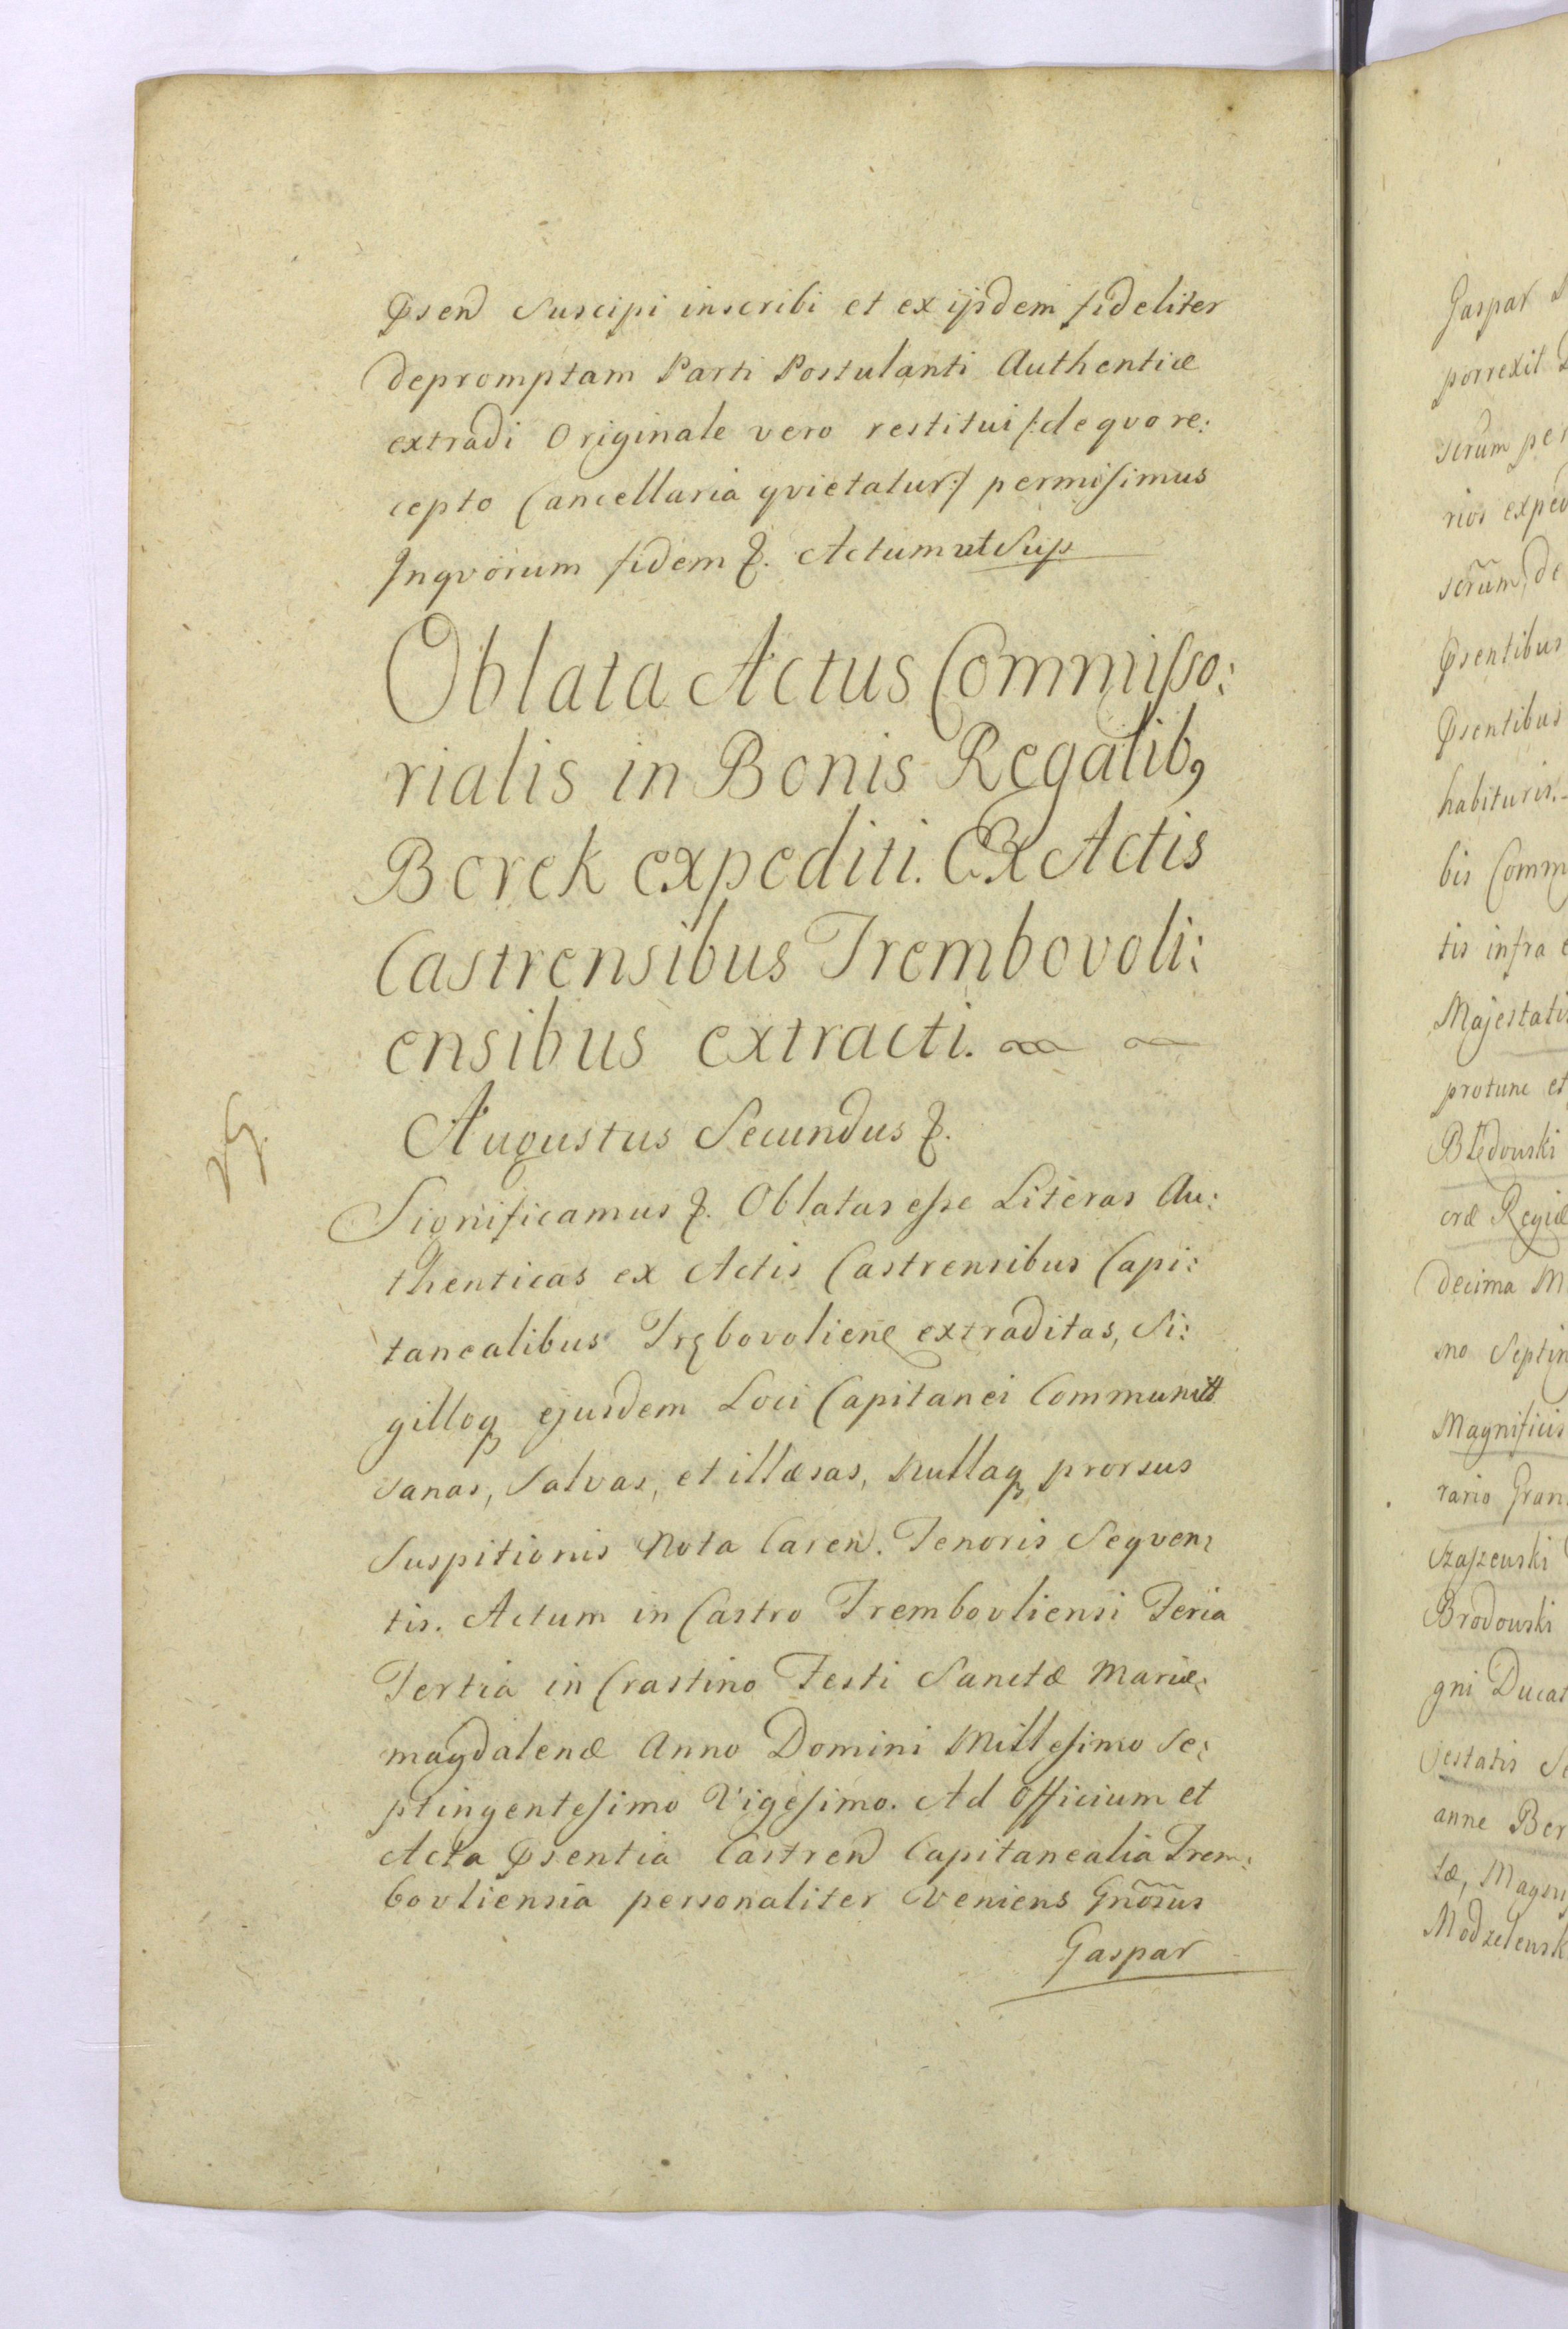 Psen Suscipi inscribi et ex ijsdem fideliter
depromptam Parti Postulanti Authenticæ
extradi Originale vero restitui /:de qvo re:
cepto Cancellaria qvietatur:/ permisimus
Inqvorum fidem &. Actum ut Sup
Oblata Actus Commisso:
rialis in Bonis Regalib,
Berek expediti. Ex Actis
Castrensibus Trembovoli:
ensibus extracti.
Augustus Secundus &.
Significamus &. Oblatas esse Literas Au:
thenticas ex Actis Castrensibus Capi:
tanealibus Trębovoliene extraditas, Si:
gilloq ejusdem Loci Capitanei Communitt
sanas, Salvas, et illæsas, Nullaq prorsus
Suspitionis Nota Caren. Tenoris Seqven:
tis. Actum in Castro Trembovliensi Feria
Tertia in Crastino Festi Sanctæ Mariæ:
magdalenæ Anno Domini Millesimo Se:
ptingentesimo Vigesimo. Ad Officium et
Acta Psentia Castren Capitanealia Trem:
bovliensia personaliter Veniens Gnosus
Gaspar
Gaspar
porrexit
scrum per
rios exped
scrum, de
Psentibus
Psentibus
habituris.
bis Comm
tis infra
Majestatis
protunc et
Błędowski
cræ Regiæ
decima M
mo Septin
Magnificis
rario Gran
Brodowski
gni Ducat
jestatis Se
anne Ber
tæ, Magn
Modzelewsk